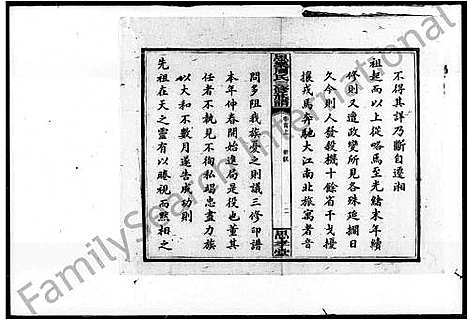 不得其詳乃斷自遷湘
祖起而以上從略焉至光緒末年續
修則又遭政變所見各殊延擱日
久今則人發殺機十餘省干戈擾
攘戎馬奔馳大江南北旅寓者音
氏三修族譜
卷首上
二
思孝堂
問多阻我族憂之則議三修印譜
本年仲春開始進局是役也董其
任者不執見不徇私竭忠盡力族
以大和不數月遂告成功則
先祖在天之靈有以睠視而默相之
FamilySearch International